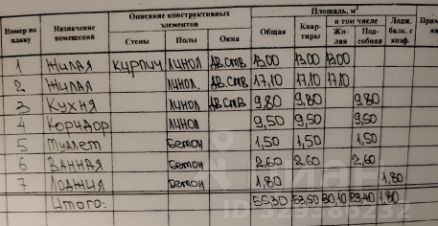 Номер по плану Назначение помещения Описание конструктивных элементов Площадь, м²
Стены Полы Окна Общая Квартиры в том числе Жилая Подсобная Лодж. балк. с коэф.
1 Жилая кирпич линол дв.ств 13.00 13.00 13.00
2 Жилая линол. дв.ств 17,10 17,10 17,10
3 Кухня линол дв.ств 9,80 9,80 9,80
4 Коридор линол 9,50 9,50 9,50
5 Туалет бетон 1,50 1,50 1,50
6 Ванная бетон 2,60 2,60 2,60
7 Лоджия бетон 1,80 1,80
Итого: 55.30 53,50 30,10 23,40 1,80